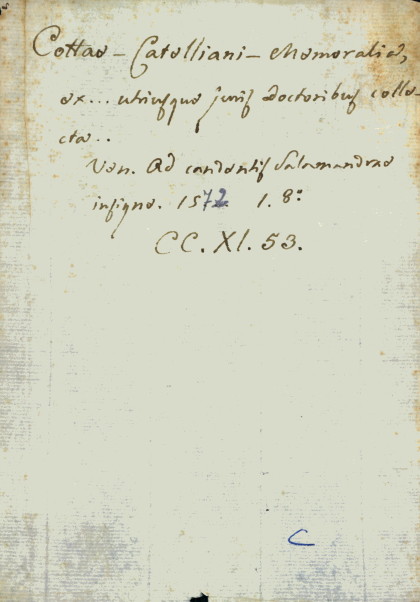 Cottae - Catelliani - Memoralia,
ex... utriusque juris doctoribus colle-
cta..
Ven. Ad candentis Salamandrae
insigne. 1572 1. 8º
CC. XI. 53.
C